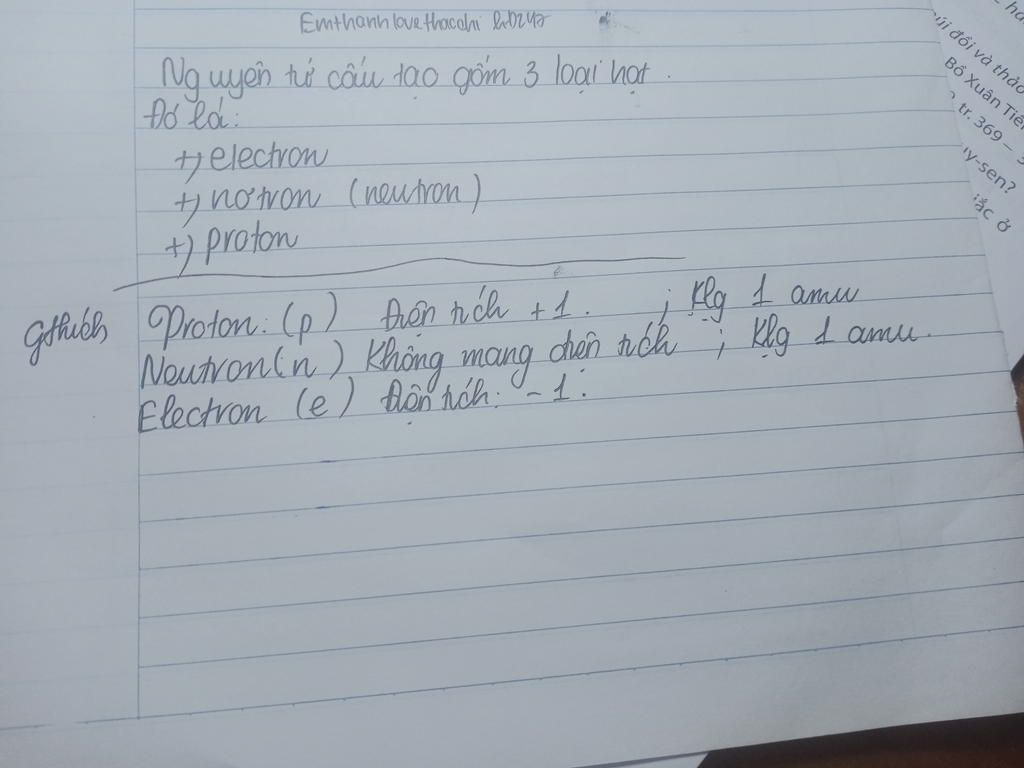 Emthanhlovethacchi
Nguyên tử cấu tạo gồm 3 loại hạt.
Đó là:
+) electron
+) nơtron (neutron)
+) proton
Gthích
Proton: (p) Điện tích +1. ; Klg 1 amu
Neutron (n) Không mang điện tích ; Klg 1 amu.
Electron (e) Điện tích: -1.
úi đổi và thảo
Bố Xuân Tiến
tr. 369 –
uy-sen?
ắc ở